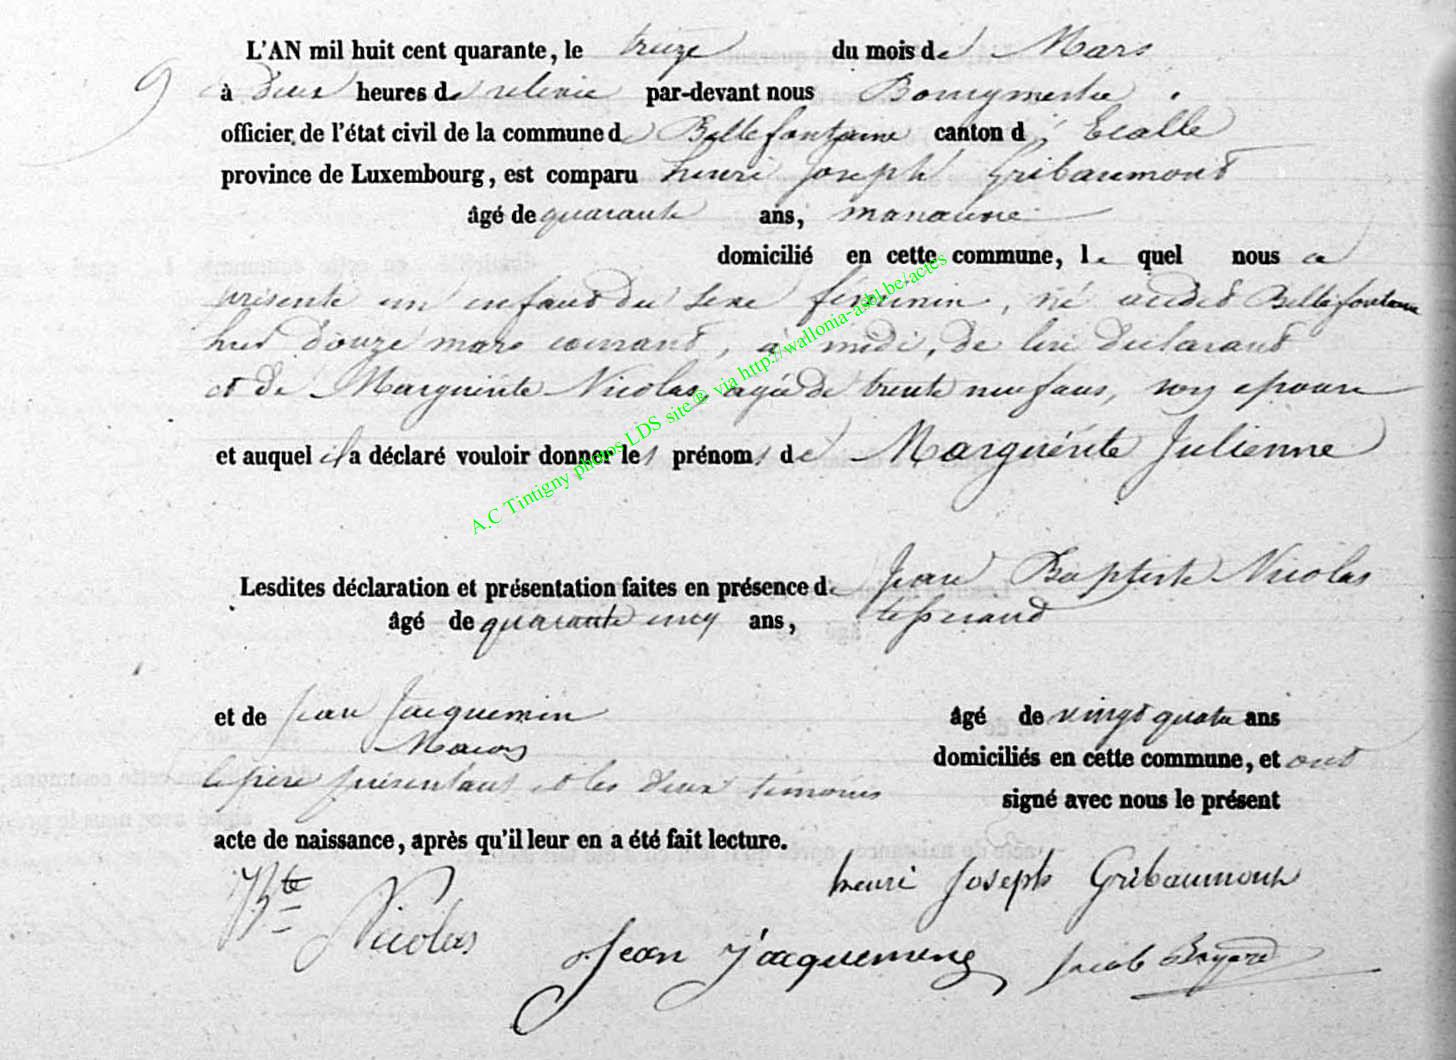 9
L'AN mil huit cent quarante, le treize du mois de Mars
à deux heures de relevée par-devant nous Bourgmestre
officier de l'état civil de la commune de Bellefontaine canton d'Etalle
province de Luxembourg, est comparu henri Joseph Gribaumont
âgé de quarante ans, manœuvre
domicilié en cette commune, lequel nous a
présenté un enfant du sexe feminin, né audit Bellefontaine
hier douze mars courant, à midi, de lui declarant
et de Marguérite Nicolas, agée de trente neuf ans, son epouse
et auquel il a déclaré vouloir donner les prénoms de Marguérite Julienne
A.C Tintigny photos LDS site ® via http://wallonia-asbl.be/actes
Lesdites déclaration et présentation faites en présence de Jean Baptiste Nicolas
âgé de quarante cinq ans, tisserand
et de Jean Jacquemin âgé de vingt quatre ans
domiciliés en cette commune, et ont
le père présentant et les deux témoins signé avec nous le présent
acte de naissance, après qu'il leur en a été fait lecture.
henri Joseph Gribaumont
JBte Nicolas
Jean Jacquemin